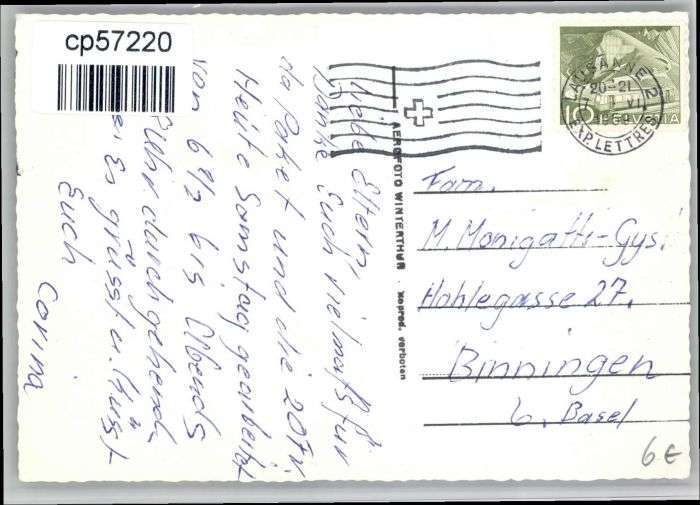 cp57220
Liebe Eltern,
Danke Euch vielmals für
das Paket und die 20 Fr.
Heute Samstag gearbeitet
von 6½ bis Abends
Uhr durchgehend.
Es grüsst u. küsst
Euch
Corina
AEROFOTO WINTERTHUR · Reprod. verboten
LAUSANNE 2
20-21
EXP. LETTRES
HELVETIA
10
Fam.
M. Monigatti-Gysi
Hohlegasse 27.
Binningen
b. Basel
6 €